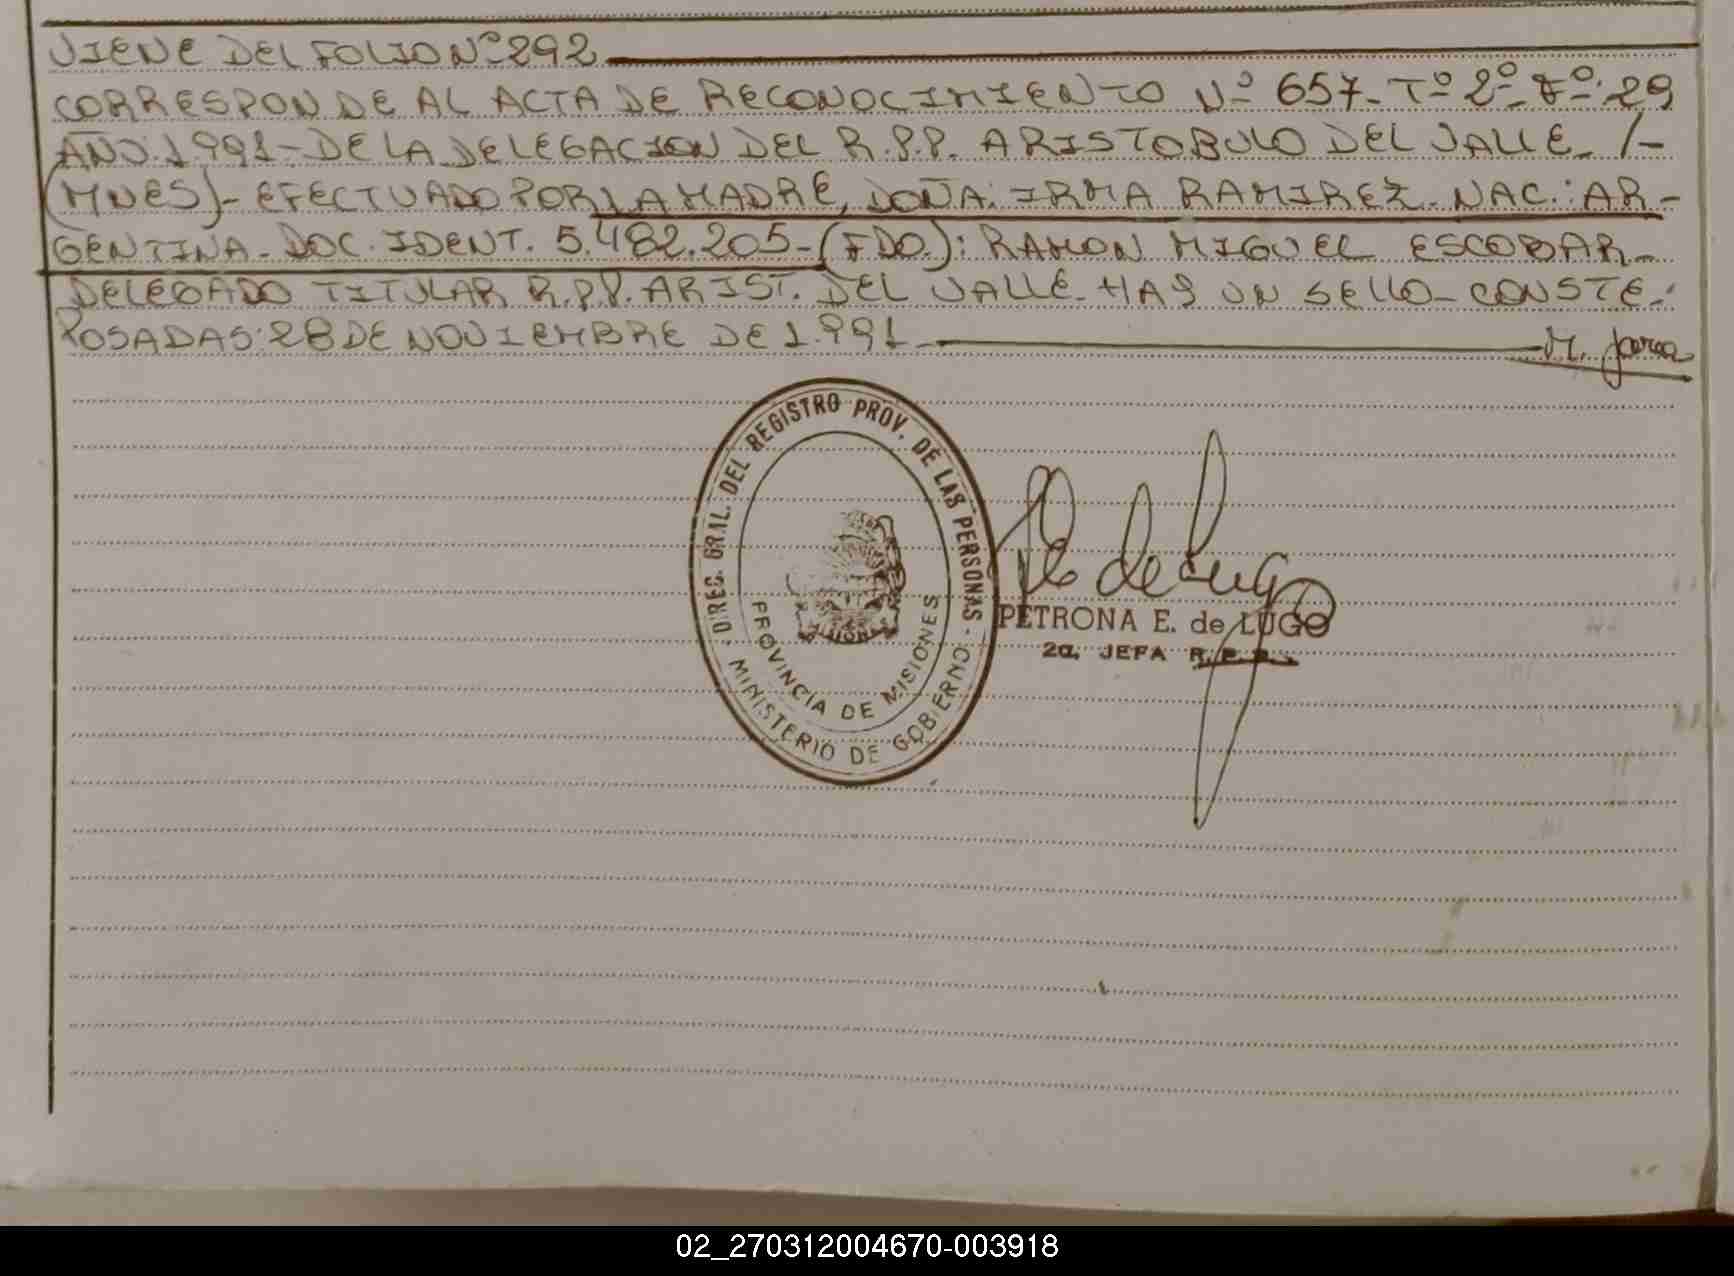 VIENE DEL FOLIO Nº 292
CORRESPONDE AL ACTA DE RECONOCIMIENTO Nº 657- Tº 2º- Fº: 29
AÑO: 1991- DE LA DELEGACION DEL R.P.P. ARISTOBULO DEL VALLE- /-
(MNES)- EFECTUADO POR LA MADRE, DOÑA: IRMA RAMIREZ- NAC.: AR-
GENTINA- DOC. IDENT. 5.482.205- (FDO.): RAMON MIGUEL ESCOBAR-
DELEGADO TITULAR R.P.P. ARIST. DEL VALLE- HAY UN SELLO- CONSTE-:
POSADAS: 28 DE NOVIEMBRE DE 1.991
DIREC. GRAL. DEL REGISTRO PROV. DE LAS PERSONAS -
MINISTERIO DE GOBIERNO
PROVINCIA DE MISIONES
de Lugo
PETRONA E. de LUGO
2a, JEFA R.P.P.
02_270312004670-003918